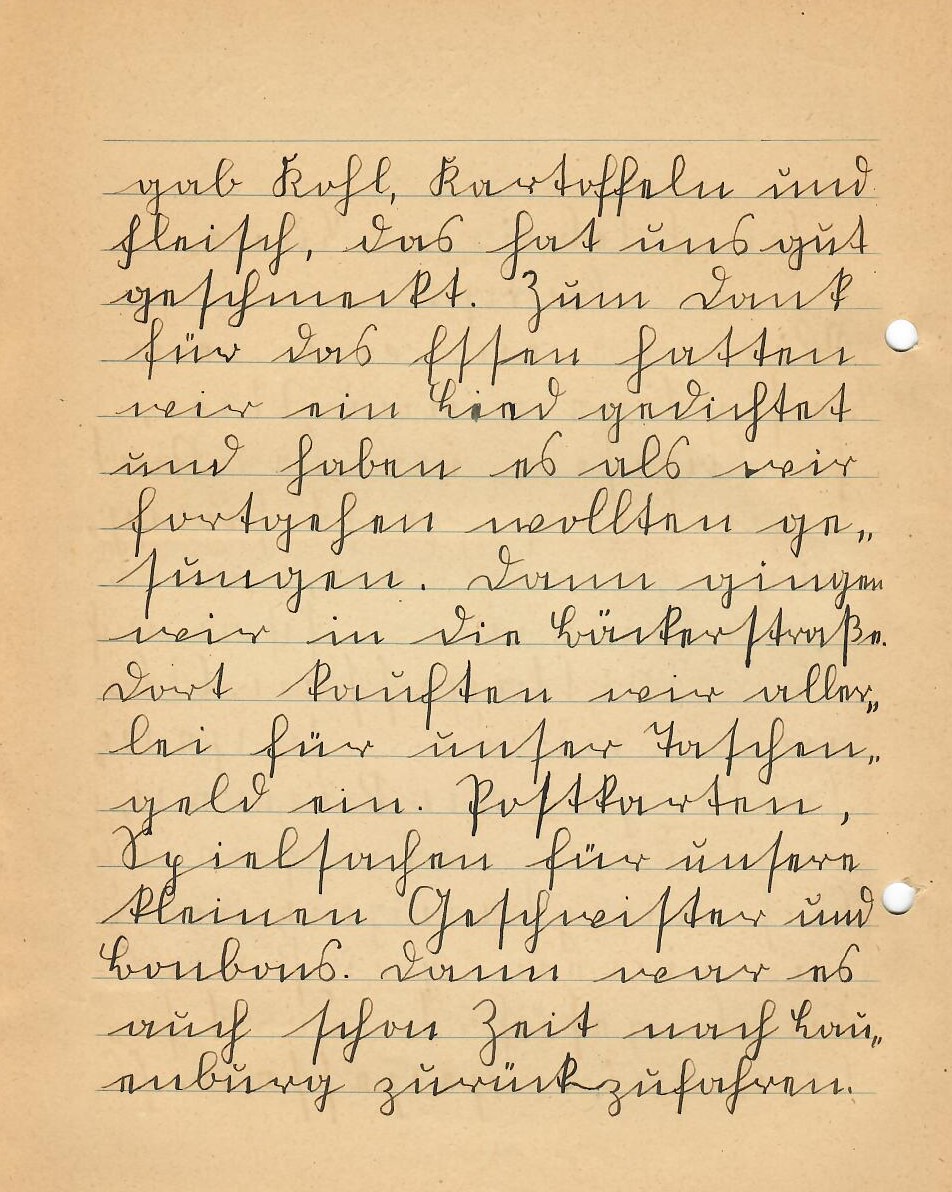 gab Kohl, Kartoffeln und
Fleisch, das hat uns gut
geschmeckt. Zum Dank
für das Essen hatten
wir ein Lied gedichtet
und haben es als wir
fortgehen wollten ge„
sungen. Dann gingen
wir in die Bäckerstraße.
Dort kauften wir aller„
lei für unser Taschen„
geld ein. Postkarten,
Spielsachen für unsere
kleinen Geschwister und
Bonbons. Dann war es
auch schon Zeit nach Lau„
enburg zurückzufahren.